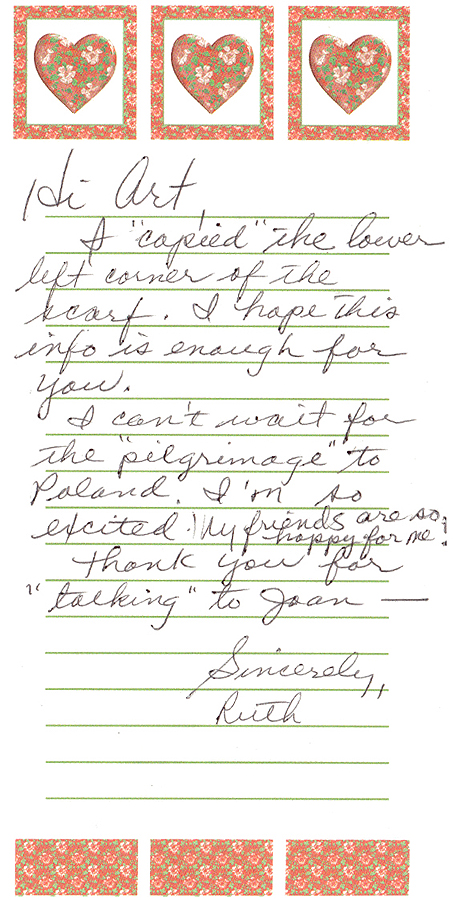 Hi Art,
I "copied" the lower
left corner of the
scarf. I hope this
info is enough for
you.
I can't wait for
the "pilgrimage" to
Poland. I'm so
excited! My friends are so
happy for me!
Thank you for
"talking" to Joan —
Sincerely,
Ruth